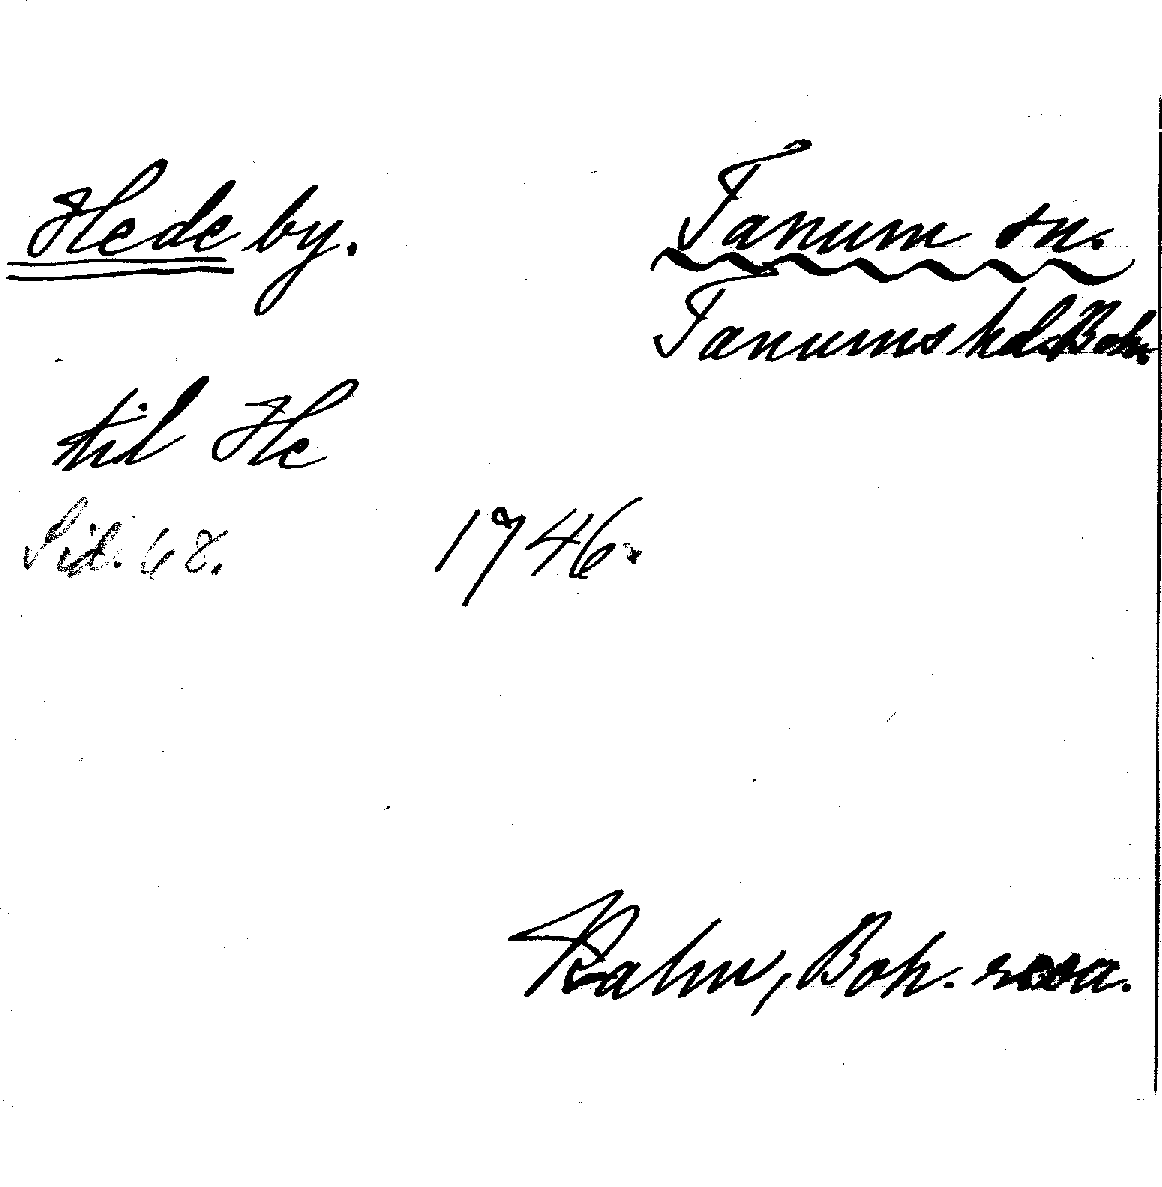 Hede by.
Tanum sn.
Tanums hd. Boh.
til He
Sid. 68. 1746.
Kalm, Boh. resa.